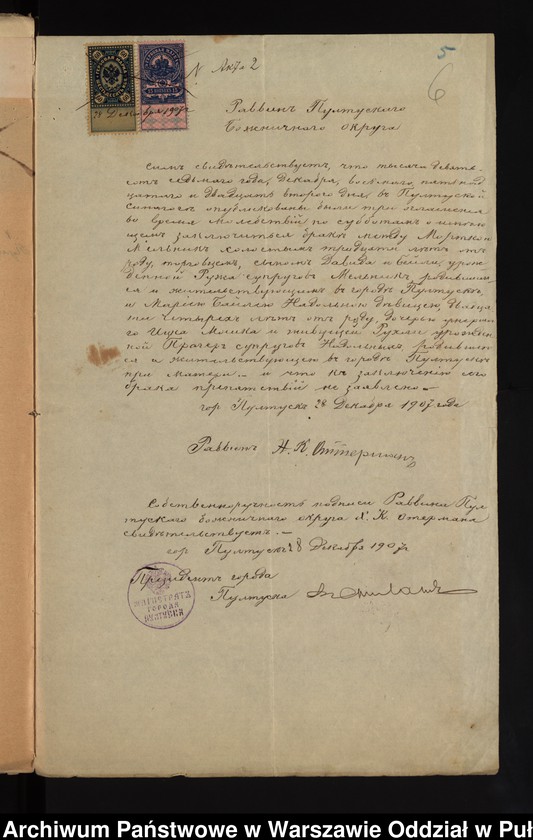 5
6
N Акта 2
28 Декабря 1907 г
Раввинъ Пултускаго
Божничнаго округа
Симъ свидѣтельствуетъ, что тысяча девять-
сотъ седьмаго года, Декабря, восьмаго, пятнад
цатаго и двадцать втораго дня, въ Пултуской
синагогѣ опубликованы были три оглашенія
во время молебствій по субботамъ о имѣю-
щемъ заключиться бракѣ между
Мельникъ холостымъ тридцати лѣтъ отъ
роду, торговцемъ, сыномъ Давида и Бейли, урож-
денной Ружа супруговъ Мельникъ, родившим-
ся и жительствующимъ въ городѣ Пултускѣ,
и Маріею Байлею Надольною дѣвицею, двадца
ти четырехъ лѣтъ отъ роду, дочерью умерш
го Ицка Мошка и живущей Рухли урожден
ной Прагеръ супруговъ Надольныхъ, родившею
ся и жительствующею въ городѣ Пултускѣ
при матери. — и что къ заключенію сего
брака препятствій не заявлено —
гор. Пултускъ 28 Декабря 1907 года
Раввинъ Н. К. Оттерманъ
Собственноручность подписи Раввина Пул
тускаго божничнаго округа Х. К. Отермана
свидѣтельствуетъ. —
гор. Пултускъ 28 Декабря 1907 г
Президентъ города
Пултуска
МАГИСТРАТЪ
ГОРОДА
ПУЛТУСКА
Archiwum Państwowe w Warszawie Oddział w Puł